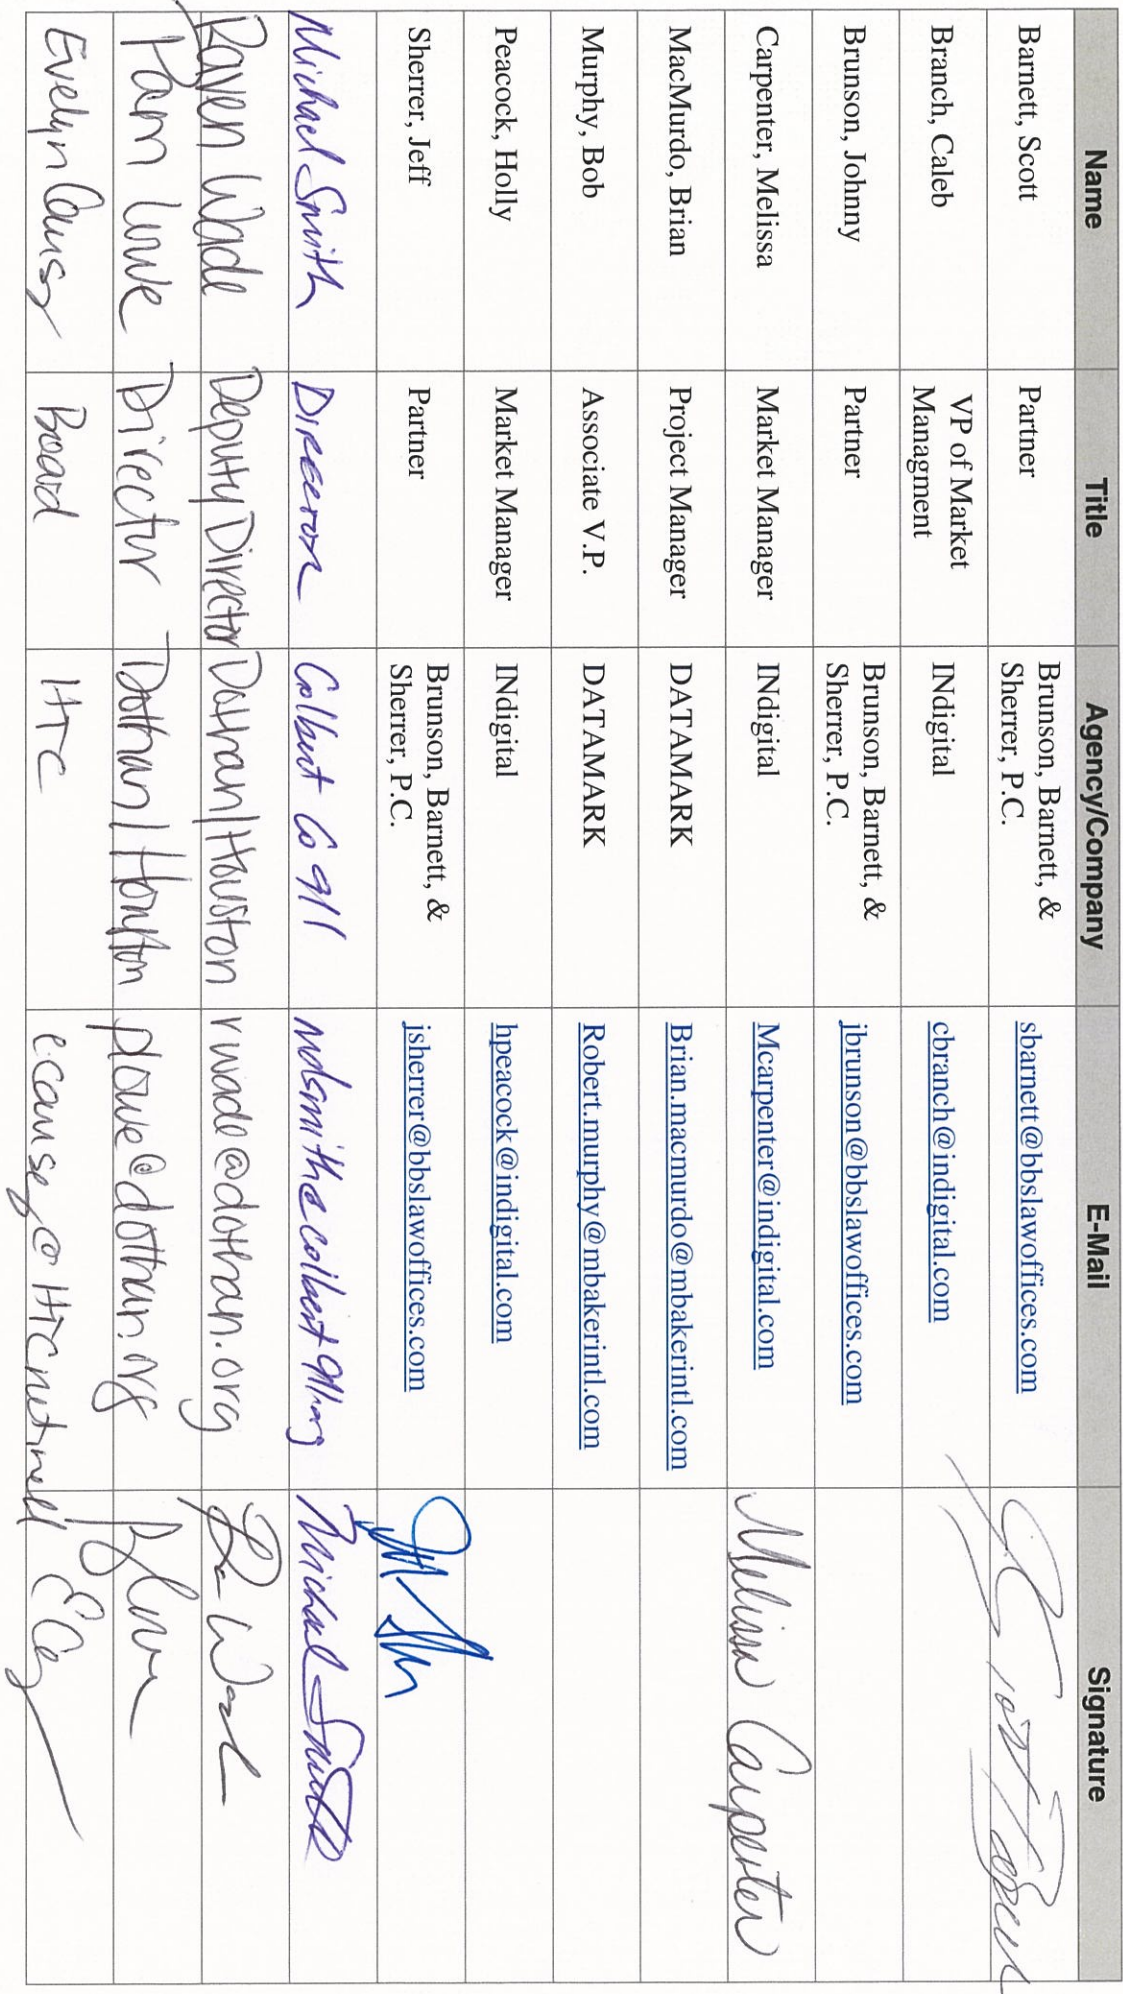 Name Title Agency/Company E-Mail Signature
Barnett, Scott Partner Brunson, Barnett, &
Sherrer, P.C. sbarnett@bbslawoffices.com
Branch, Caleb VP of Market
Managment INdigital cbranch@indigital.com
Brunson, Johnny Partner Brunson, Barnett, &
Sherrer, P.C. jbrunson@bbslawoffices.com
Carpenter, Melissa Market Manager INdigital Mcarpenter@indigital.com Melissa Carpenter
MacMurdo, Brian Project Manager DATAMARK Brian.macmurdo@mbakerintl.com
Murphy, Bob Associate V.P. DATAMARK Robert.murphy@mbakerintl.com
Peacock, Holly Market Manager INdigital hpeacock@indigital.com
Sherrer, Jeff Partner Brunson, Barnett, &
Sherrer, P.C. jsherrer@bbslawoffices.com
Michael Smith Director Colbert Co 911 mdsmith@colbert911.org Michael Smith
Raven Wade Deputy Director Dothan/Houston rwade@dothan.org
Pam Lowe Director Dothan/Houston plowe@dothan.org
Evelyn Causey Board HTC